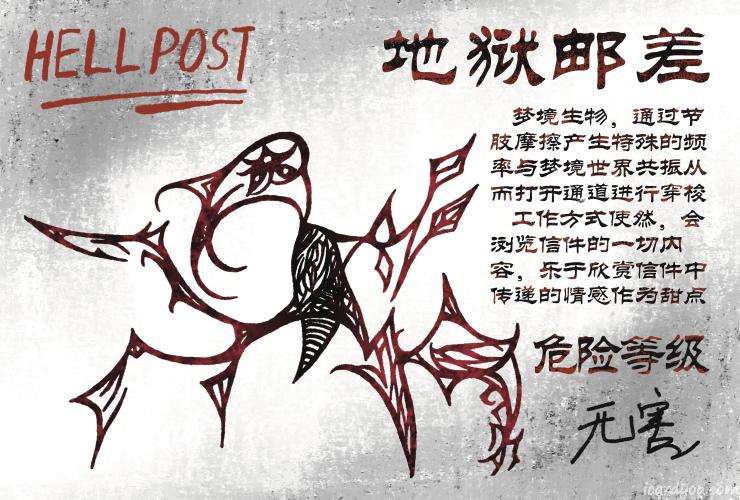 HELL POST
地狱邮差
梦境生物，通过节
肢摩擦产生特殊的频
率与梦境世界共振从
而打开通道进行穿梭
工作方式使然，会
浏览信件的一切内
容，乐于欣赏信件中
传递的情感作为甜点
危险等级
无害